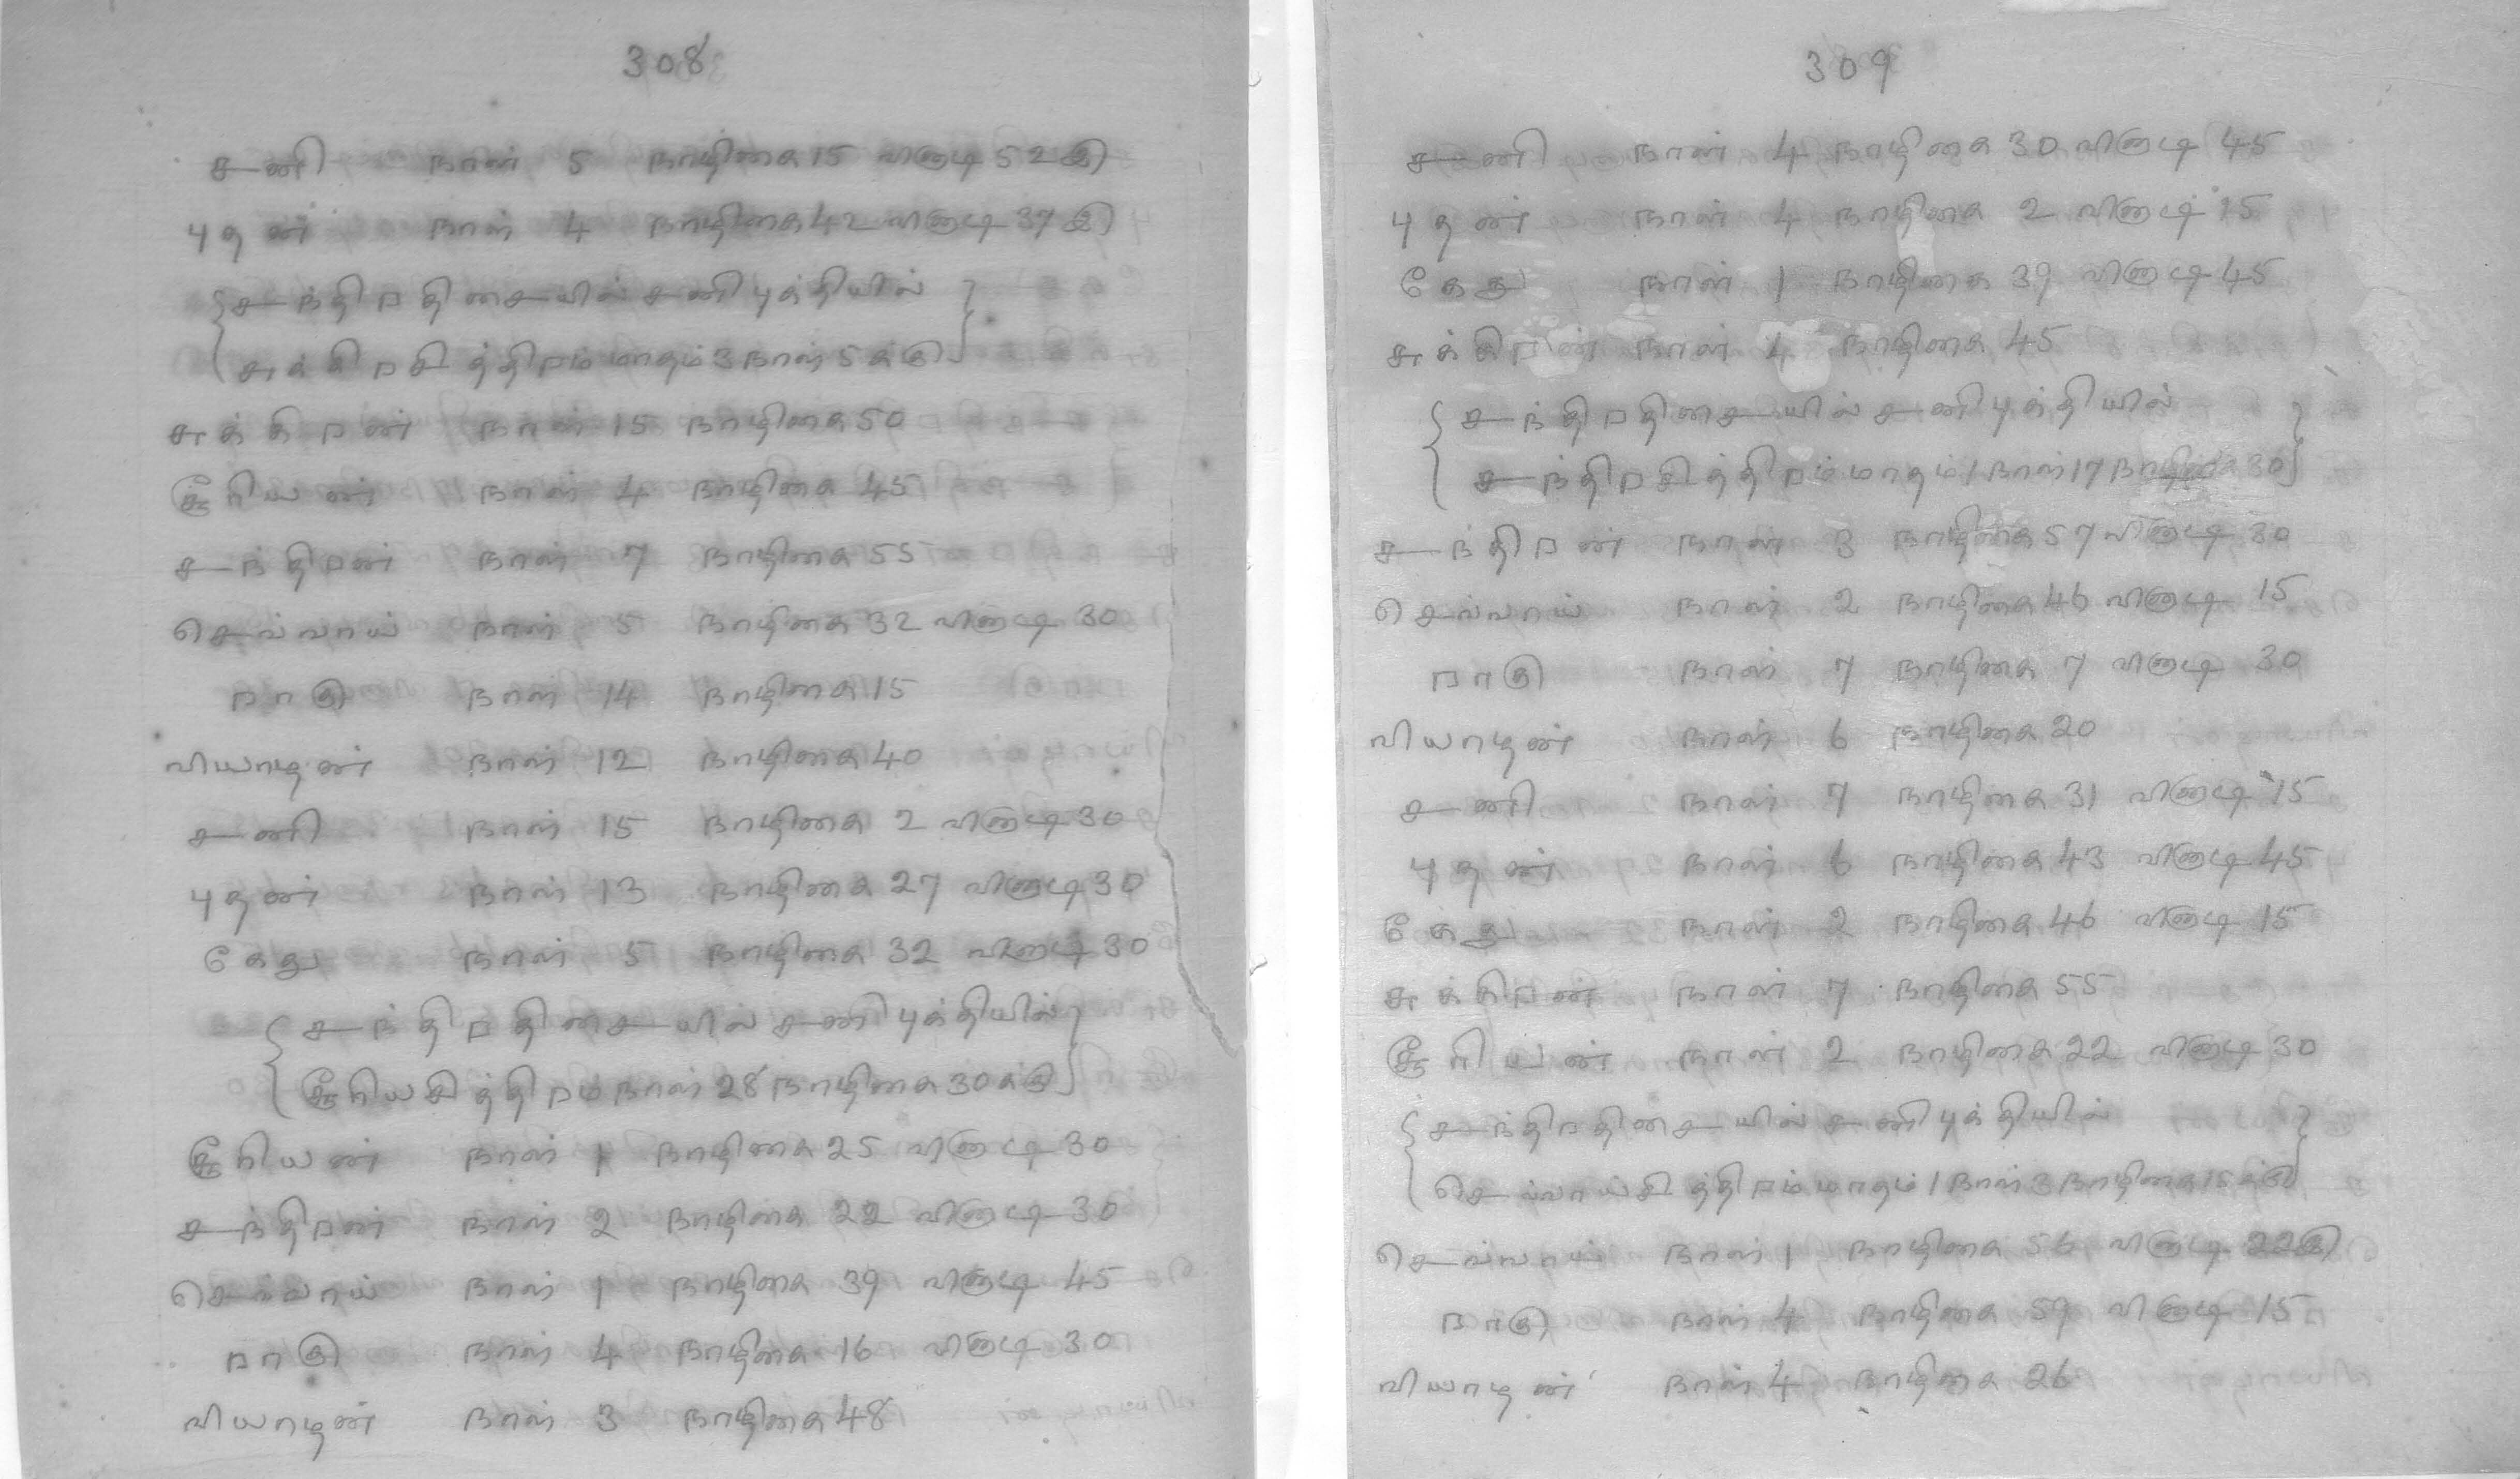 308
சனி நாள் 5 நாழிகை 15 வினாடி 52 ௲
புதன் நாள் 4 நாழிகை 42 வினாடி 37 ௲
{சந்திரதிசையில் சனிபுக்தியில்
சுக்கிரசித்திரம் மாதம் 3 நாள் 5 க்கு}
சுக்கிரன் நாள் 15 நாழிகை 50
சூரியன் நாள் 4 நாழிகை 45
சந்திரன் நாள் 7 நாழிகை 55
செவ்வாய் நாள் 5 நாழிகை 32 வினாடி 30
ராகு நாள் 14 நாழிகை 15
வியாழன் நாள் 12 நாழிகை 40
சனி நாள் 15 நாழிகை 2 வினாடி 30
புதன் நாள் 13 நாழிகை 27 வினாடி 30
கேது நாள் 5 நாழிகை 32 வினாடி 30
{சந்திரதிசையில் சனிபுக்தியில்
சூரியசித்திரம் நாள் 28 நாழிகை 30 க்கு}
சூரியன் நாள் 1 நாழிகை 25 வினாடி 30
சந்திரன் நாள் 2 நாழிகை 22 வினாடி 30
செவ்வாய் நாள் 1 நாழிகை 39 வினாடி 45
ராகு நாள் 4 நாழிகை 16 வினாடி 30
வியாழன் நாள் 3 நாழிகை 48
309
சனி நாள் 4 நாழிகை 30 வினாடி 45
புதன் நாள் 4 நாழிகை 2 வினாடி 15
கேது நாள் 1 நாழிகை 39 வினாடி 45
சுக்கிரன் நாள் 4 நாழிகை 45
{சந்திரதிசையில் சனிபுக்தியில்
சந்திரசித்திரம் மாதம் 1 நாள் 17 நாழிகை 30}
சந்திரன் நாள் 3 நாழிகை 57 வினாடி 30
செவ்வாய் நாள் 2 நாழிகை 46 வினாடி 15
ராகு நாள் 7 நாழிகை 7 வினாடி 30
வியாழன் நாள் 6 நாழிகை 20
சனி நாள் 7 நாழிகை 31 வினாடி 15
புதன் நாள் 6 நாழிகை 43 வினாடி 45
கேது நாள் 2 நாழிகை 46 வினாடி 15
சுக்கிரன் நாள் 7 நாழிகை 55
சூரியன் நாள் 2 நாழிகை 22 வினாடி 30
{சந்திரதிசையில் சனிபுக்தியில்
செவ்வாய்சித்திரம் மாதம் 1 நாள் 3 நாழிகை 15 க்கு}
செவ்வாய் நாள் 1 நாழிகை 56 வினாடி 22 ௲
ராகு நாள் 4 நாழிகை 59 வினாடி 15
வியாழன் நாள் 4 நாழிகை 26